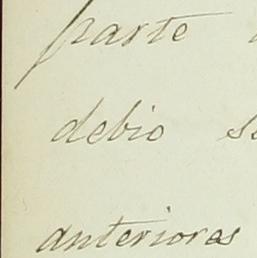 parte
debio
anteriores